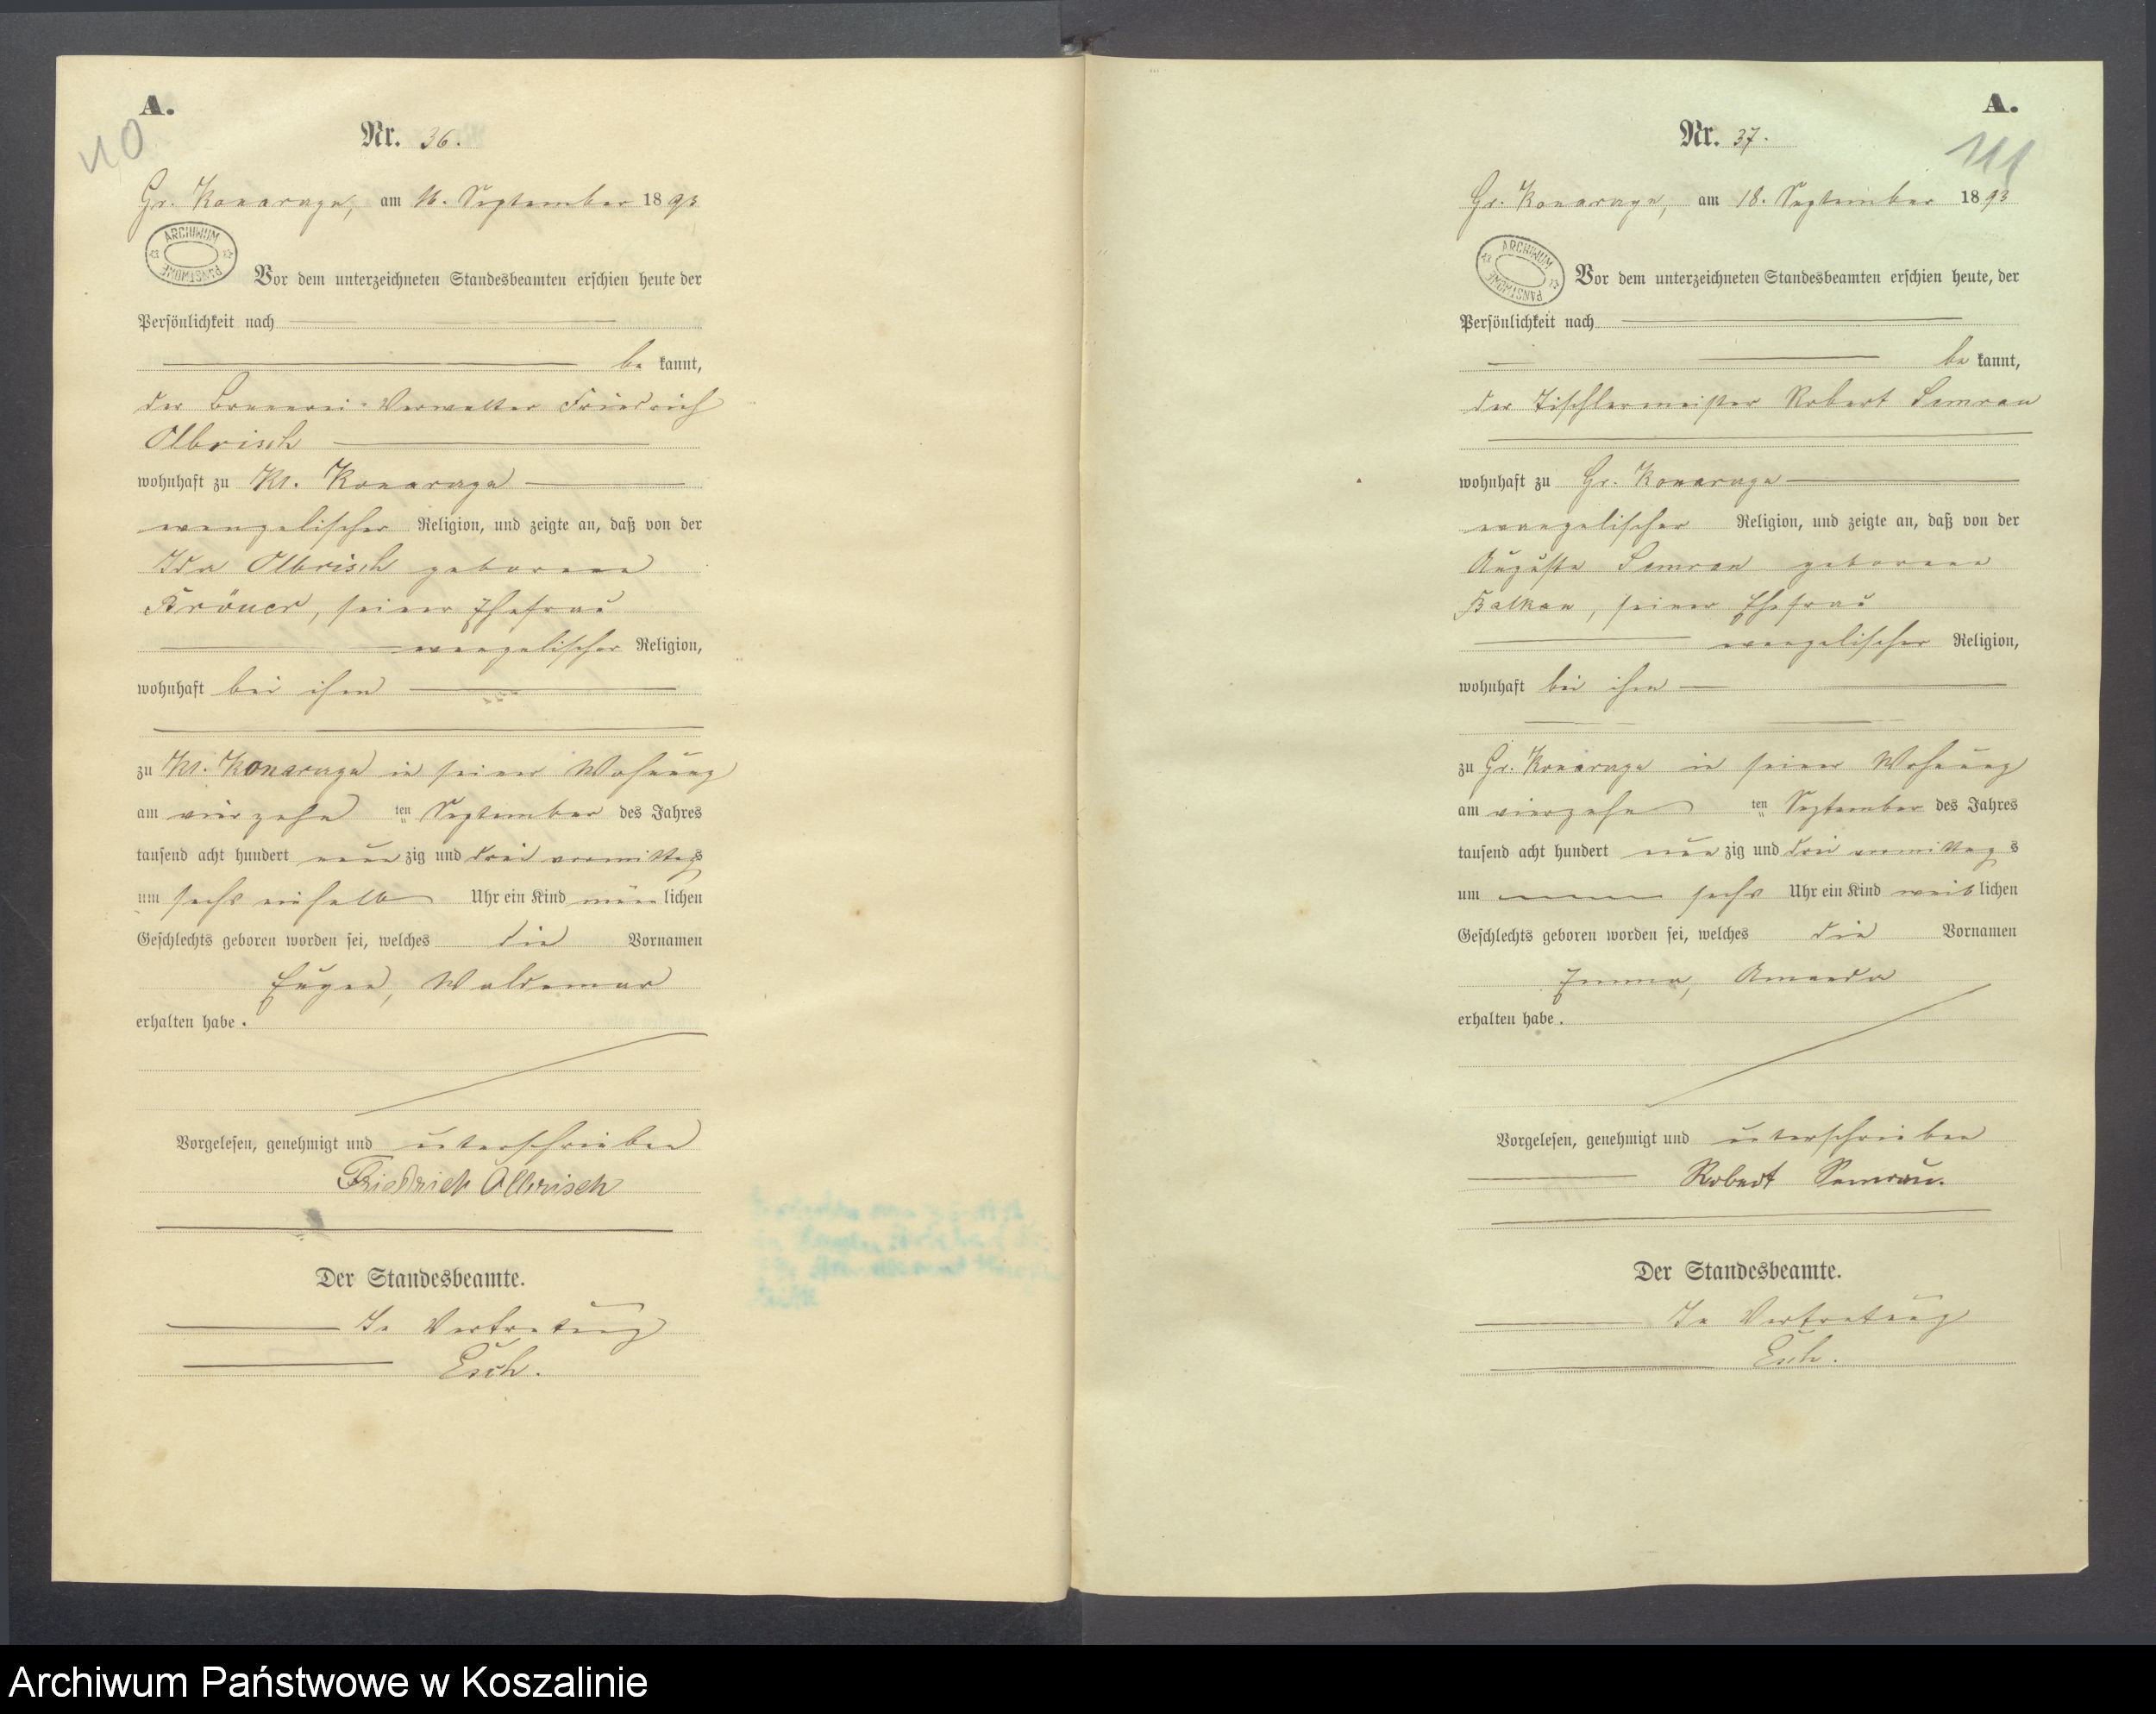 A.
110
Nr. 36.
Gr. Konarzyn, am 16. September 1893
ARCHIWUM PAŃSTWOWE
Vor dem unterzeichneten Standesbeamten erschien heute der
Persönlichkeit nach
be kannt,
der Brennerei-Verwalter Friedrich
Olbrisch
wohnhaft zu Kl. Konarzyn
evangelischer Religion, und zeigte an, daß von der
Ida Olbrisch geborene
Kröner, seiner Ehefrau
evangelischer Religion,
wohnhaft bei ihm
zu Kl. Konarzyn in seiner Wohnung
am vierzehn ten September des Jahres
tausend acht hundert neun zig und drei vormittags
um sechs einhalb Uhr ein Kind männ lichen
Geschlechts geboren worden sei, welches die Vornamen
Eugen, Waldemar
erhalten habe.
Vorgelesen, genehmigt und unterschrieben
Friedrich Olbrisch
Der Standesbeamte.
In Vertretung
Esch.
A.
111
Nr. 37.
Gr. Konarzyn, am 18. September 1893
ARCHIWUM PAŃSTWOWE
Vor dem unterzeichneten Standesbeamten erschien heute, der
Persönlichkeit nach
be kannt,
der Tischlermeister Robert Semrau
wohnhaft zu Gr. Konarzyn
evangelischer Religion, und zeigte an, daß von der
Auguste Semrau geborene
Balkau, seiner Ehefrau
evangelischer Religion,
wohnhaft bei ihm
zu Gr. Konarzyn in seiner Wohnung
am vierzehn ten September des Jahres
tausend acht hundert neun zig und drei vormittag s
um sechs Uhr ein Kind weib lichen
Geschlechts geboren worden sei, welches die Vornamen
Emma, Amanda
erhalten habe.
Vorgelesen, genehmigt und unterschrieben
Robert Semrau.
Der Standesbeamte.
In Vertretung
Esch.
Archiwum Państwowe w Koszalinie